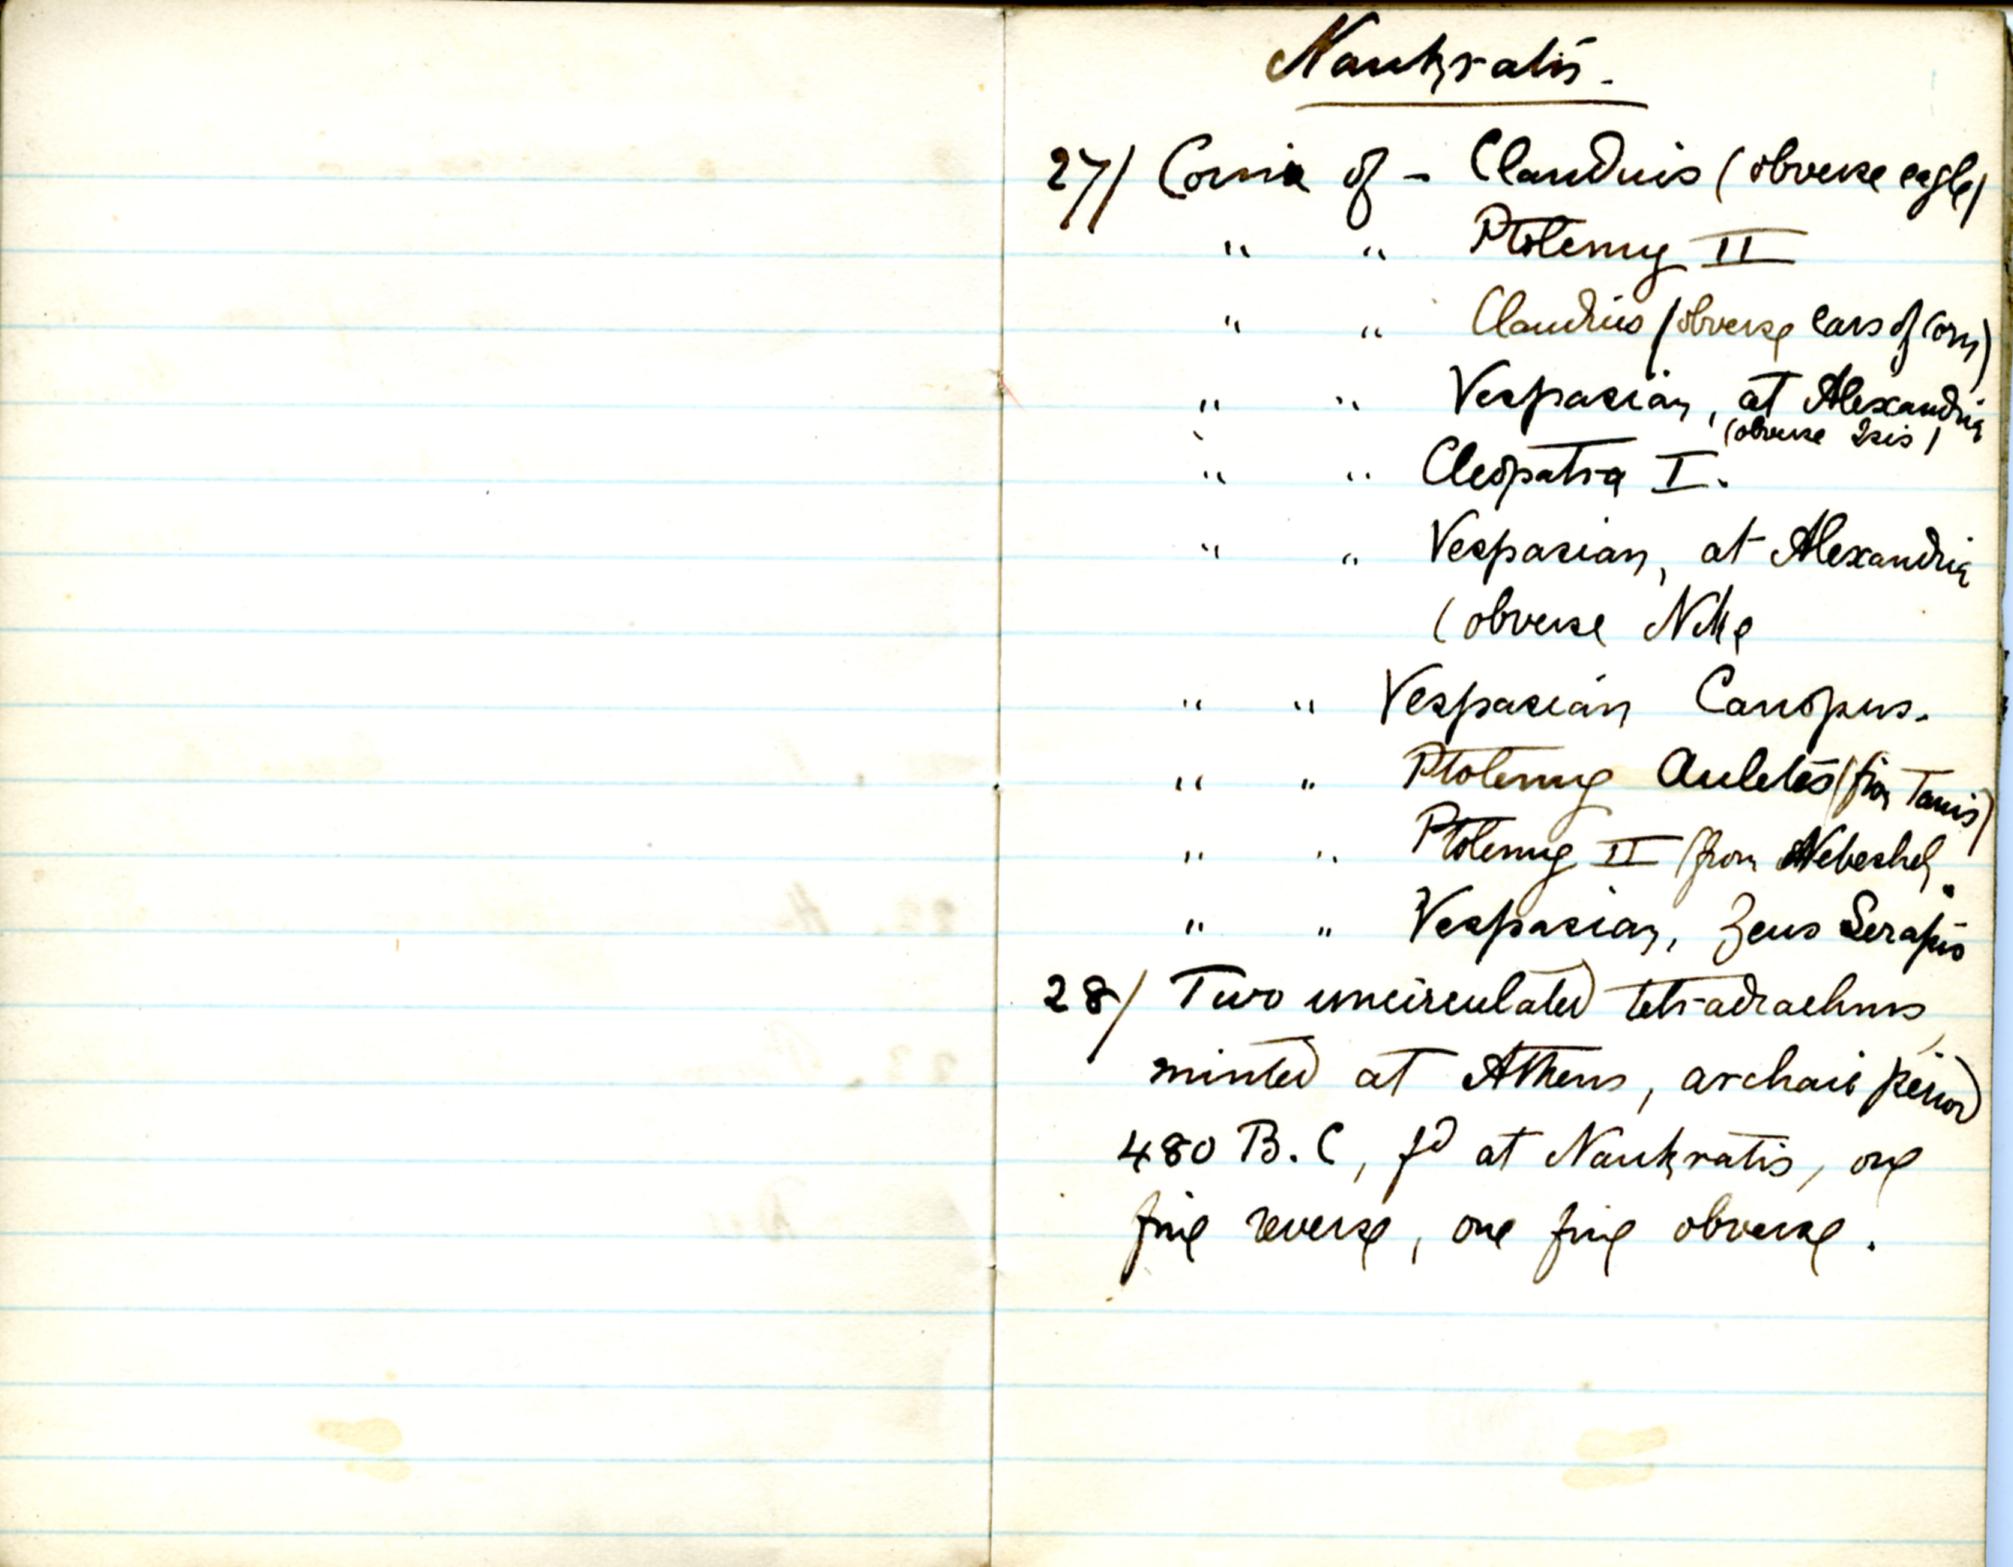 Naukratis.
27/ Coins of - Claudius (obverse eagle)
" " Ptolemy II
" " Claudius (obverse ears of corn)
" " Vespasian, at Alexandria
(obverse Isis)
" " Cleopatra I.
" " Vespasian, at Alexandria
(obverse Nike
" " Vespasian Canopus.
" " Ptolemy Auletes (from Tanis)
" " Ptolemy II (from Nebesheh.
" " Vespasian, Zeus Serapis
28/ Two uncirculated tetradrachms
minted at Athens, archaic period
480 B.C, fd at Naukratis, one
fine reverse, one fine obverse.